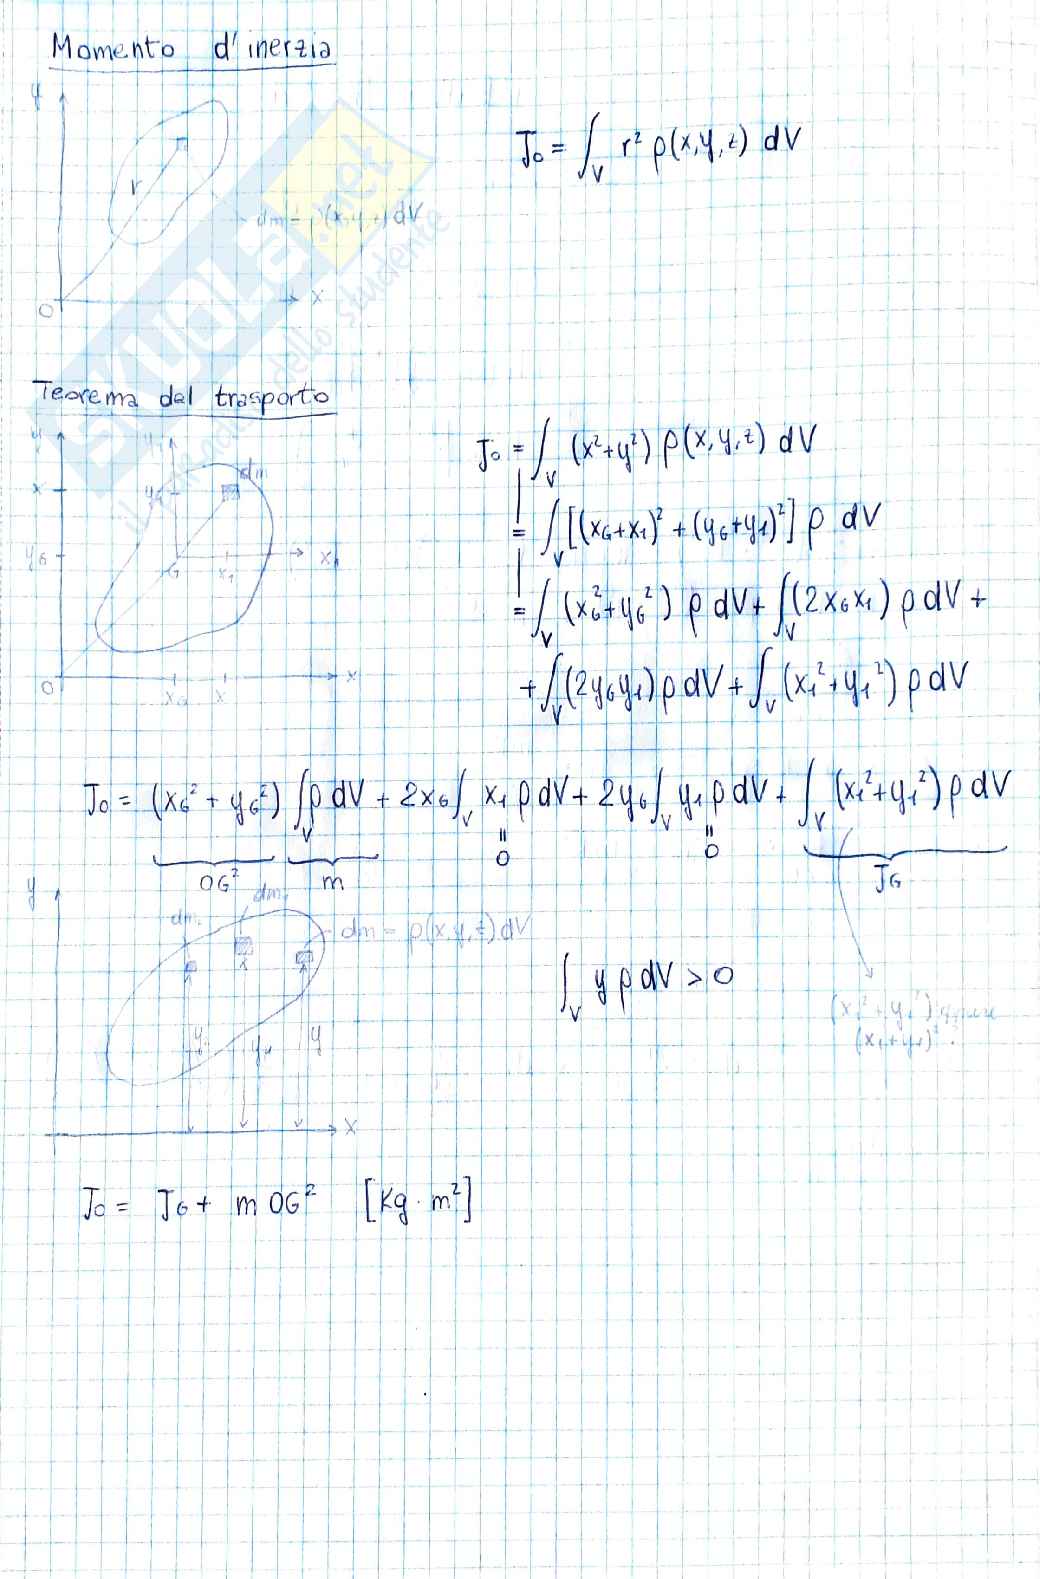 Momento d'inerzia
y
r
dm = ρ(x,y,z) dV
O
x
J₀ = ∫_V r² ρ(x,y,z) dV
SKUOLA.net
il mondo dello studente
Teorema del trasporto
y
y₁
x
y₁
dm
y_G
G
x₁
x₁
O
x_G
x
x
J₀ = ∫_V (x²+y²) ρ(x,y,z) dV
= ∫_V [(x_G+x₁)² + (y_G+y₁)²] ρ dV
= ∫_V (x_G²+y_G²) ρ dV + ∫_V (2x_G x₁) ρ dV +
+ ∫_V (2y_G y₁) ρ dV + ∫_V (x₁²+y₁²) ρ dV
J₀ = (x_G² + y_G²) ∫_V ρ dV + 2x_G ∫_V x₁ ρ dV + 2y_G ∫_V y₁ ρ dV + ∫_V (x₁²+y₁²) ρ dV
OG² m = 0 = 0 J_G
y
dm
dm
dm = ρ(x,y,z) dV
y
x
∫_V y ρ dV > 0
(x₁² + y₁²) oppure
(x₁+y₁)² ?
J₀ = J_G + m OG² [Kg · m²]